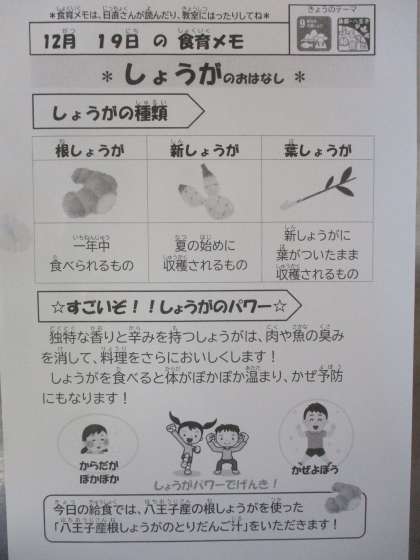 *食育メモは、日直さんが読んだり、教室にはったりしてね*
きょうのテーマ
12月 19日 の 食育メモ
* しょうがのおはなし *
しょうがの種類
根しょうが 新しょうが 葉しょうが
一年中
食べられるもの
夏の始めに
収穫されるもの
新しょうがに
葉がついたまま
収穫されるもの
☆すごいぞ！！しょうがのパワー☆
独特な香りと辛みを持つしょうがは、肉や魚の臭み
を消して、料理をさらにおいしくします！
しょうがを食べると体がぽかぽか温まり、かぜ予防
にもなります！
からだが
ぽかぽか
しょうがパワーでげんき！
かぜよぼう
今日の給食では、八王子産の根しょうがを使った
「八王子産根しょうがのとりだんご汁」をいただきます！